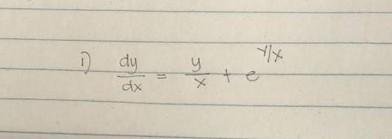 1) dy/dx = y/x + e^y/x